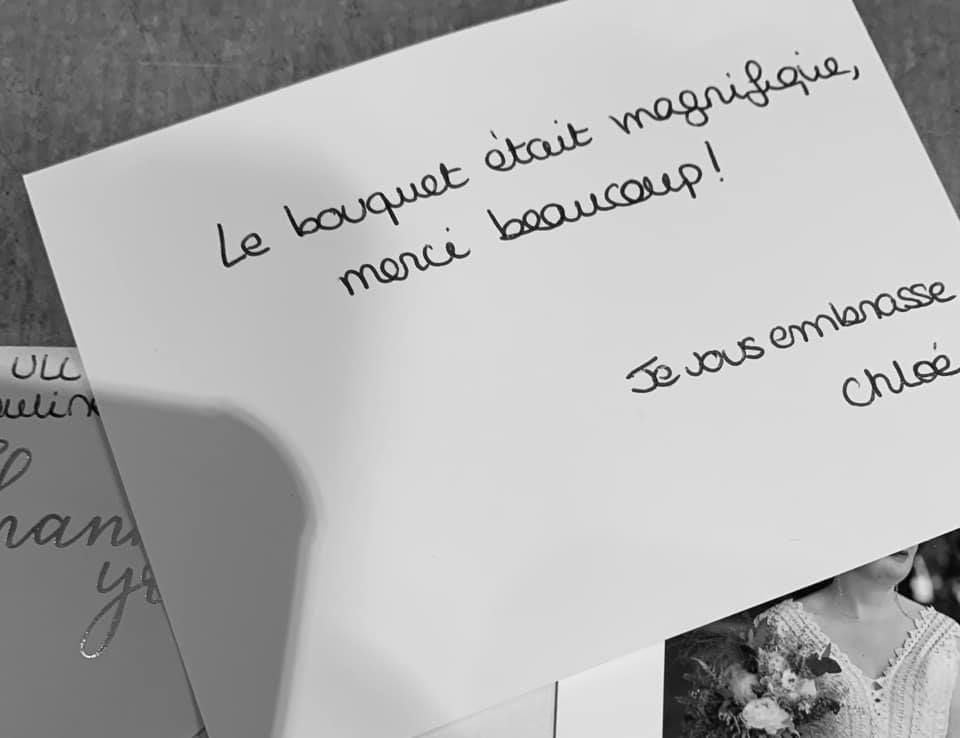 Le bouquet était magnifique,
merci beaucoup!
Je vous embrasse
Chloé